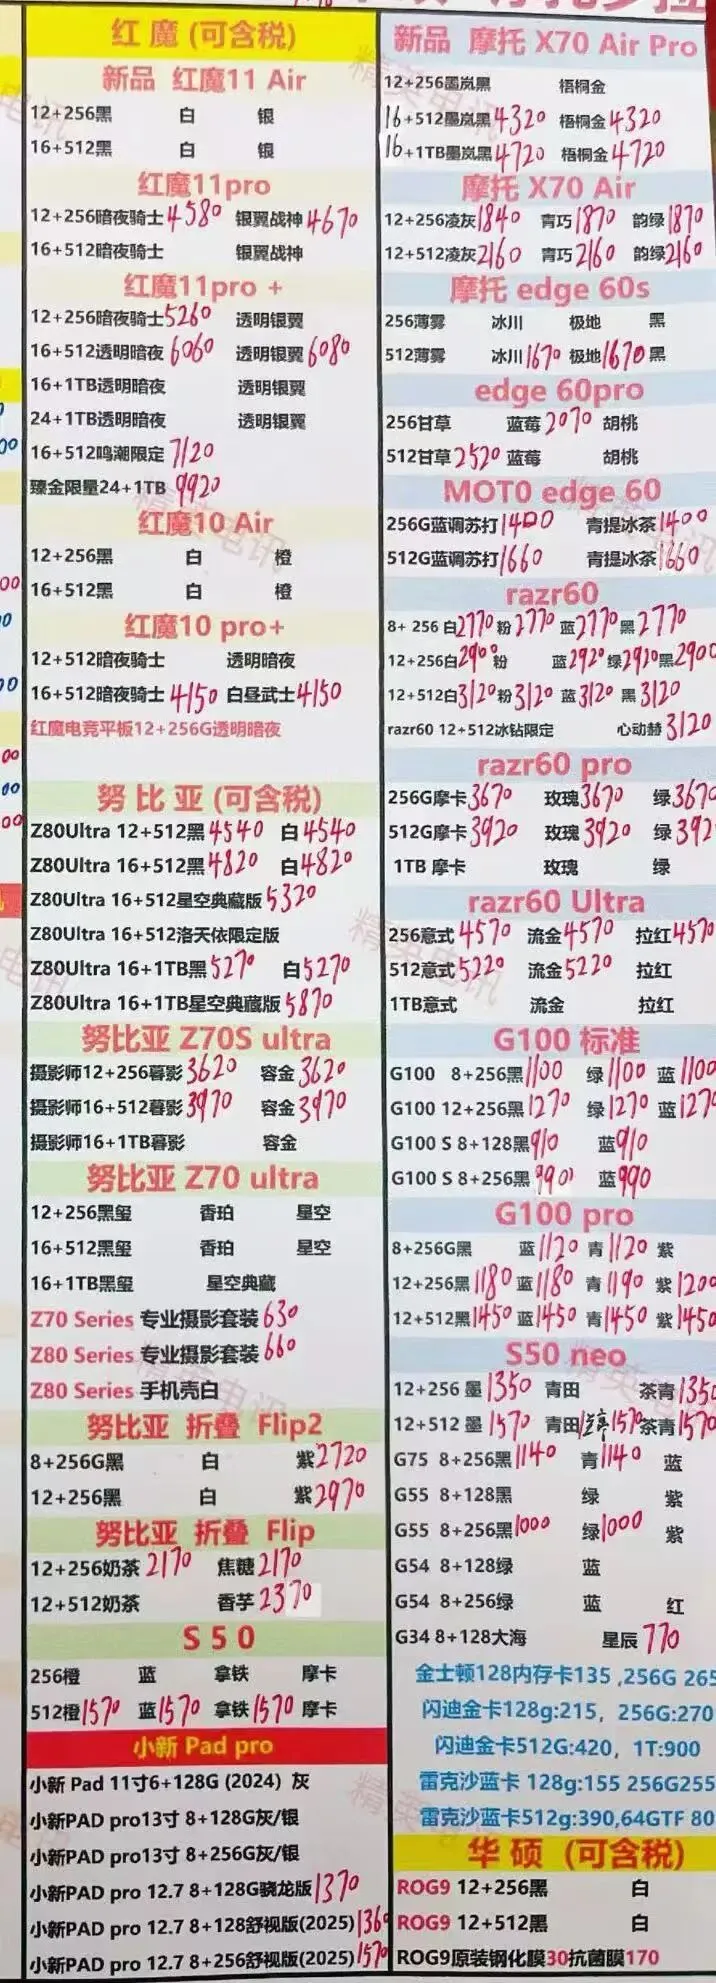 红 魔 (可含税)
新品 红魔11 Air
12+256黑 白 银
16+512黑 白 银
红魔11pro
12+256暗夜骑士4580 银翼战神4670
16+512暗夜骑士 银翼战神
红魔11pro +
12+256暗夜骑士5260 透明银翼
16+512透明暗夜6060 透明银翼6080
16+1TB透明暗夜 透明银翼
24+1TB透明暗夜 透明银翼
16+512鸣潮限定7120
臻金限量24+1TB 9920
红魔10 Air
12+256黑 白 橙
16+512黑 白 橙
红魔10 pro+
12+512暗夜骑士 透明暗夜
16+512暗夜骑士4150 白昼武士4150
红魔电竞平板12+256G透明暗夜
努 比 亚 (可含税)
Z80Ultra 12+512黑4540 白4540
Z80Ultra 16+512黑4820 白4820
Z80Ultra 16+512星空典藏版5320
Z80Ultra 16+512洛天依限定版
Z80Ultra 16+1TB黑5270 白5270
Z80Ultra 16+1TB星空典藏版5870
努比亚 Z70S ultra
摄影师12+256暮影3620 容金3620
摄影师16+512暮影3970 容金3970
摄影师16+1TB暮影 容金
努比亚 Z70 ultra
12+256黑玺 香珀 星空
16+512黑玺 香珀 星空
16+1TB黑玺 星空典藏
Z70 Series 专业摄影套装630
Z80 Series 专业摄影套装660
Z80 Series 手机壳白
努比亚 折叠 Flip2
8+256G黑 白 紫2720
12+256黑 白 紫2970
努比亚 折叠 Flip
12+256奶茶2170 焦糖2170
12+512奶茶 香芋2370
S 5 0
256橙 蓝 拿铁 摩卡
512橙1570 蓝1570 拿铁1570 摩卡
小新 Pad pro
小新 Pad 11寸6+128G (2024) 灰
小新PAD pro13寸 8+128G灰/银
小新PAD pro13寸 8+256G灰/银
小新PAD pro 12.7 8+128G骁龙版1370
小新PAD pro 12.7 8+128舒视版(2025)1360
小新PAD pro 12.7 8+256舒视版(2025)1570
新品 摩托 X70 Air Pro
12+256墨岚黑 梧桐金
16+512墨岚黑4320 梧桐金4320
16+1TB墨岚黑4720 梧桐金4720
摩托 X70 Air
12+256凌灰1840 青巧1870 韵绿1870
12+512凌灰2160 青巧2160 韵绿2160
摩托 edge 60s
256薄雾 冰川 极地 黑
512薄雾 冰川1670 极地1670黑
edge 60pro
256甘草 蓝莓2070 胡桃
512甘草2520 蓝莓 胡桃
MOT0 edge 60
256G蓝调苏打1400 青提冰茶1400
512G蓝调苏打1660 青提冰茶1660
razr60
8+ 256 白2770粉2770 蓝2770黑2770
12+256白2900粉 蓝2920绿2920黑2900
12+512白3120粉3120 蓝3120 黑3120
razr60 12+512冰钻限定 心动赫3120
razr60 pro
256G摩卡3670 玫瑰3670 绿3670
512G摩卡3920 玫瑰3920 绿392
1TB 摩卡 玫瑰 绿
razr60 Ultra
256意式4570 流金4570 拉红4570
512意式5220 流金5220 拉红
1TB意式 流金 拉红
G100 标准
G100 8+256黑1100 绿1100 蓝1100
G100 12+256黑1270 绿1270 蓝1270
G100 S 8+128黑910 蓝910
G100 S 8+256黑990 蓝990
G100 pro
8+256G黑 蓝1120 青1120 紫
12+256黑1180蓝1180 青1190 紫1200
12+512黑1450蓝1450 青1450 紫1450
S50 neo
12+256 墨1350 青田 茶青1350
12+512 墨1570 青田 1570茶青1570
G75 8+256黑1140 青1140 蓝
G55 8+128黑 绿 紫
G55 8+256黑1000 绿1000 紫
G54 8+128绿 蓝
G54 8+256绿 蓝 红
G34 8+128大海 星辰770
金士顿128内存卡135 ,256G 265
闪迪金卡128g:215，256G:270
闪迪金卡512G:420，1T:900
雷克沙蓝卡 128g:155 256G255
雷克沙蓝卡512g:390,64GTF 80
华 硕 (可含税)
ROG9 12+256黑 白
ROG9 12+512黑 白
ROG9原装钢化膜30抗菌膜170